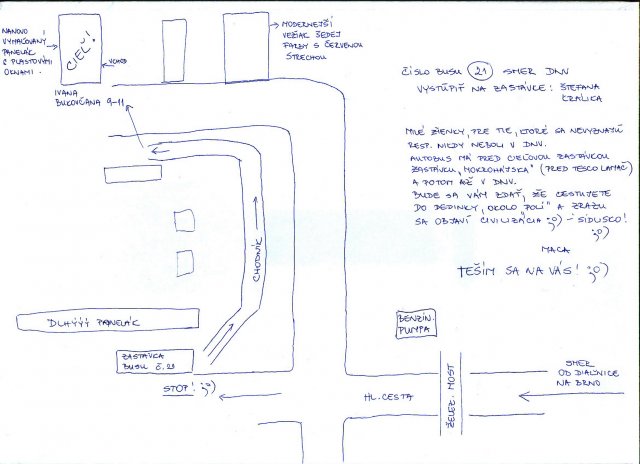 NANOVO
VYMAĽOVANÝ
PANELÁK
S PLASTOVÝMI
OKNAMI.
CIEĽ!
VCHOD
IVANA
BUKOVČANA 9-11
MODERNEJŠÍ
VEŽIAK ŠEDEJ
FARBY S ČERVENOU
STRECHOU
ČISLO BUSU 21 SMER DNV
VYSTÚPIŤ NA ZASTÁVKE: ŠTEFANA
KRÁLIKA
MILÉ ŽIENKY, PRE TIE, KTORÉ SA NEVYZNAJÚ
RESP. NIKDY NEBOLI V DNV.
AUTOBUS MÁ PRED CIEĽOVOU ZASTÁVKOU
ZASTÁVKU „MOKROHÁJSKA" (PRED TESCO LAMAČ)
A POTOM AŽ V DNV.
BUDE SA VÁM ZDAŤ, ŽE CESTUJETE
DO DEDINKY „OKOLO POLÍ" A ZRAZU
SA OBJAVÍ CIVILIZÁCIA ;o) - SÍDLISKO!
;o)
MACA
TEŠÍM SA NA VÁS! ;o)
CHODNÍK
DLHÝÝÝ PANELÁK
ZASTÁVKA
BUSU Č.21
STOP! ;o)
BENZÍN.
PUMPA
HL. CESTA
ŽELEZ. MOST
SMER
OD DIAĽNICE
NA BRNO